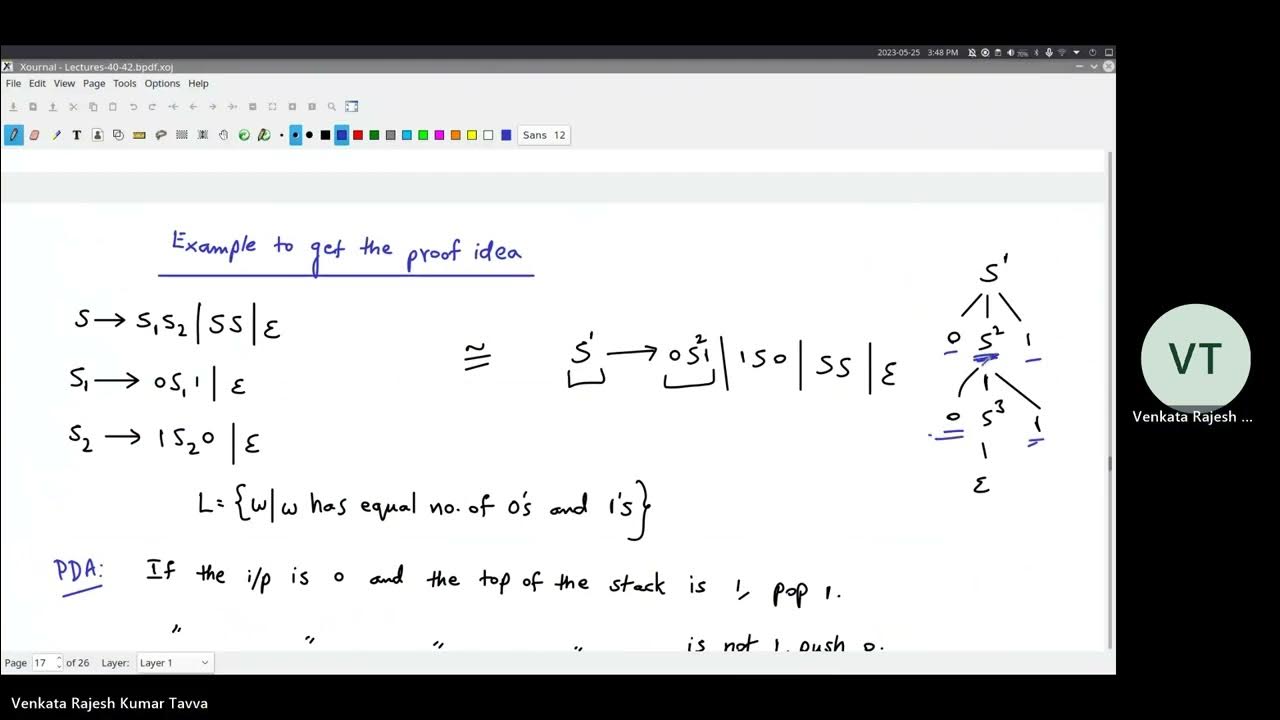 2023-05-25 3:48 PM
Xournal - Lectures-40-42.bpdf.xoj
File Edit View Page Tools Options Help
Sans 12
Example to get the proof idea
S → S₁S₂ | SS | ε
S₁ → 0S₁1 | ε
S₂ → 1S₂0 | ε
≅
S¹ → 0S²1 | 1S0 | SS | ε
S¹
0 S² 1
0 S³ 1
ε
L = {w | w has equal no. of 0's and 1's}
PDA: If the i/p is 0 and the top of the stack is 1, pop 1.
" " " " is not 1, push 0.
VT
Venkata Rajesh ...
Page 17 of 26 Layer: Layer 1
Venkata Rajesh Kumar Tavva